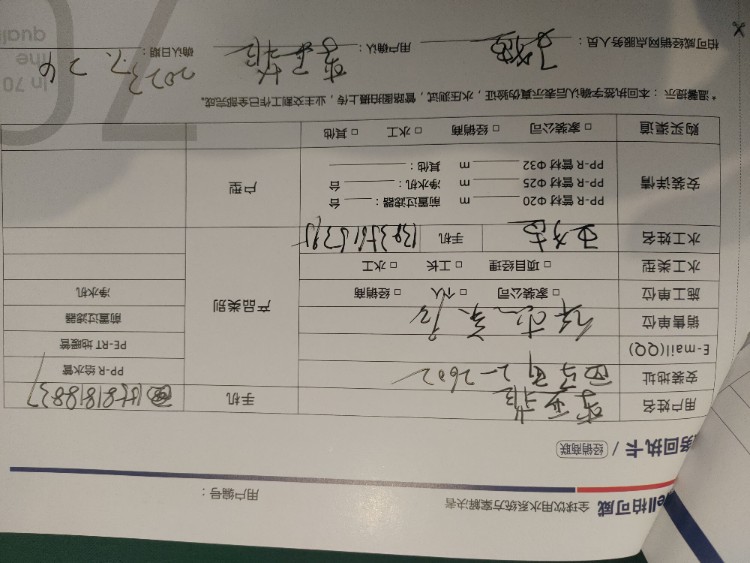 ell柏可威 全球饮用水系统方案解决者
用户编号：
务回执卡 / 经销商联
用户姓名
手机
安装地址 2-2602
PP-R 给水管
E-mail(QQ)
PE-RT 地暖管
销售单位
前置过滤器
施工单位 □ 家装公司 □ 个人 □ 经销商
产品类别
净水机
水工类型 □ 项目经理 □ 工长 □ 水工
水工姓名 手机
安装详情
PP-R 管材 Φ20 m 前置过滤器： 台
PP-R 管材 Φ25 m 净水机： 台
PP-R 管材 Φ32 m 其他：
户型
购买渠道 □ 家装公司 □ 经销商 □ 水工 □ 其他
*温馨提示：本回执签字确认后表示真伪验证，水压测试，管路图拍摄上传，业主交割工作已全部完成。
柏可威经销网点服务人员： 用户确认： 确认日期： 2023.7.26
In 70
line
quali
70